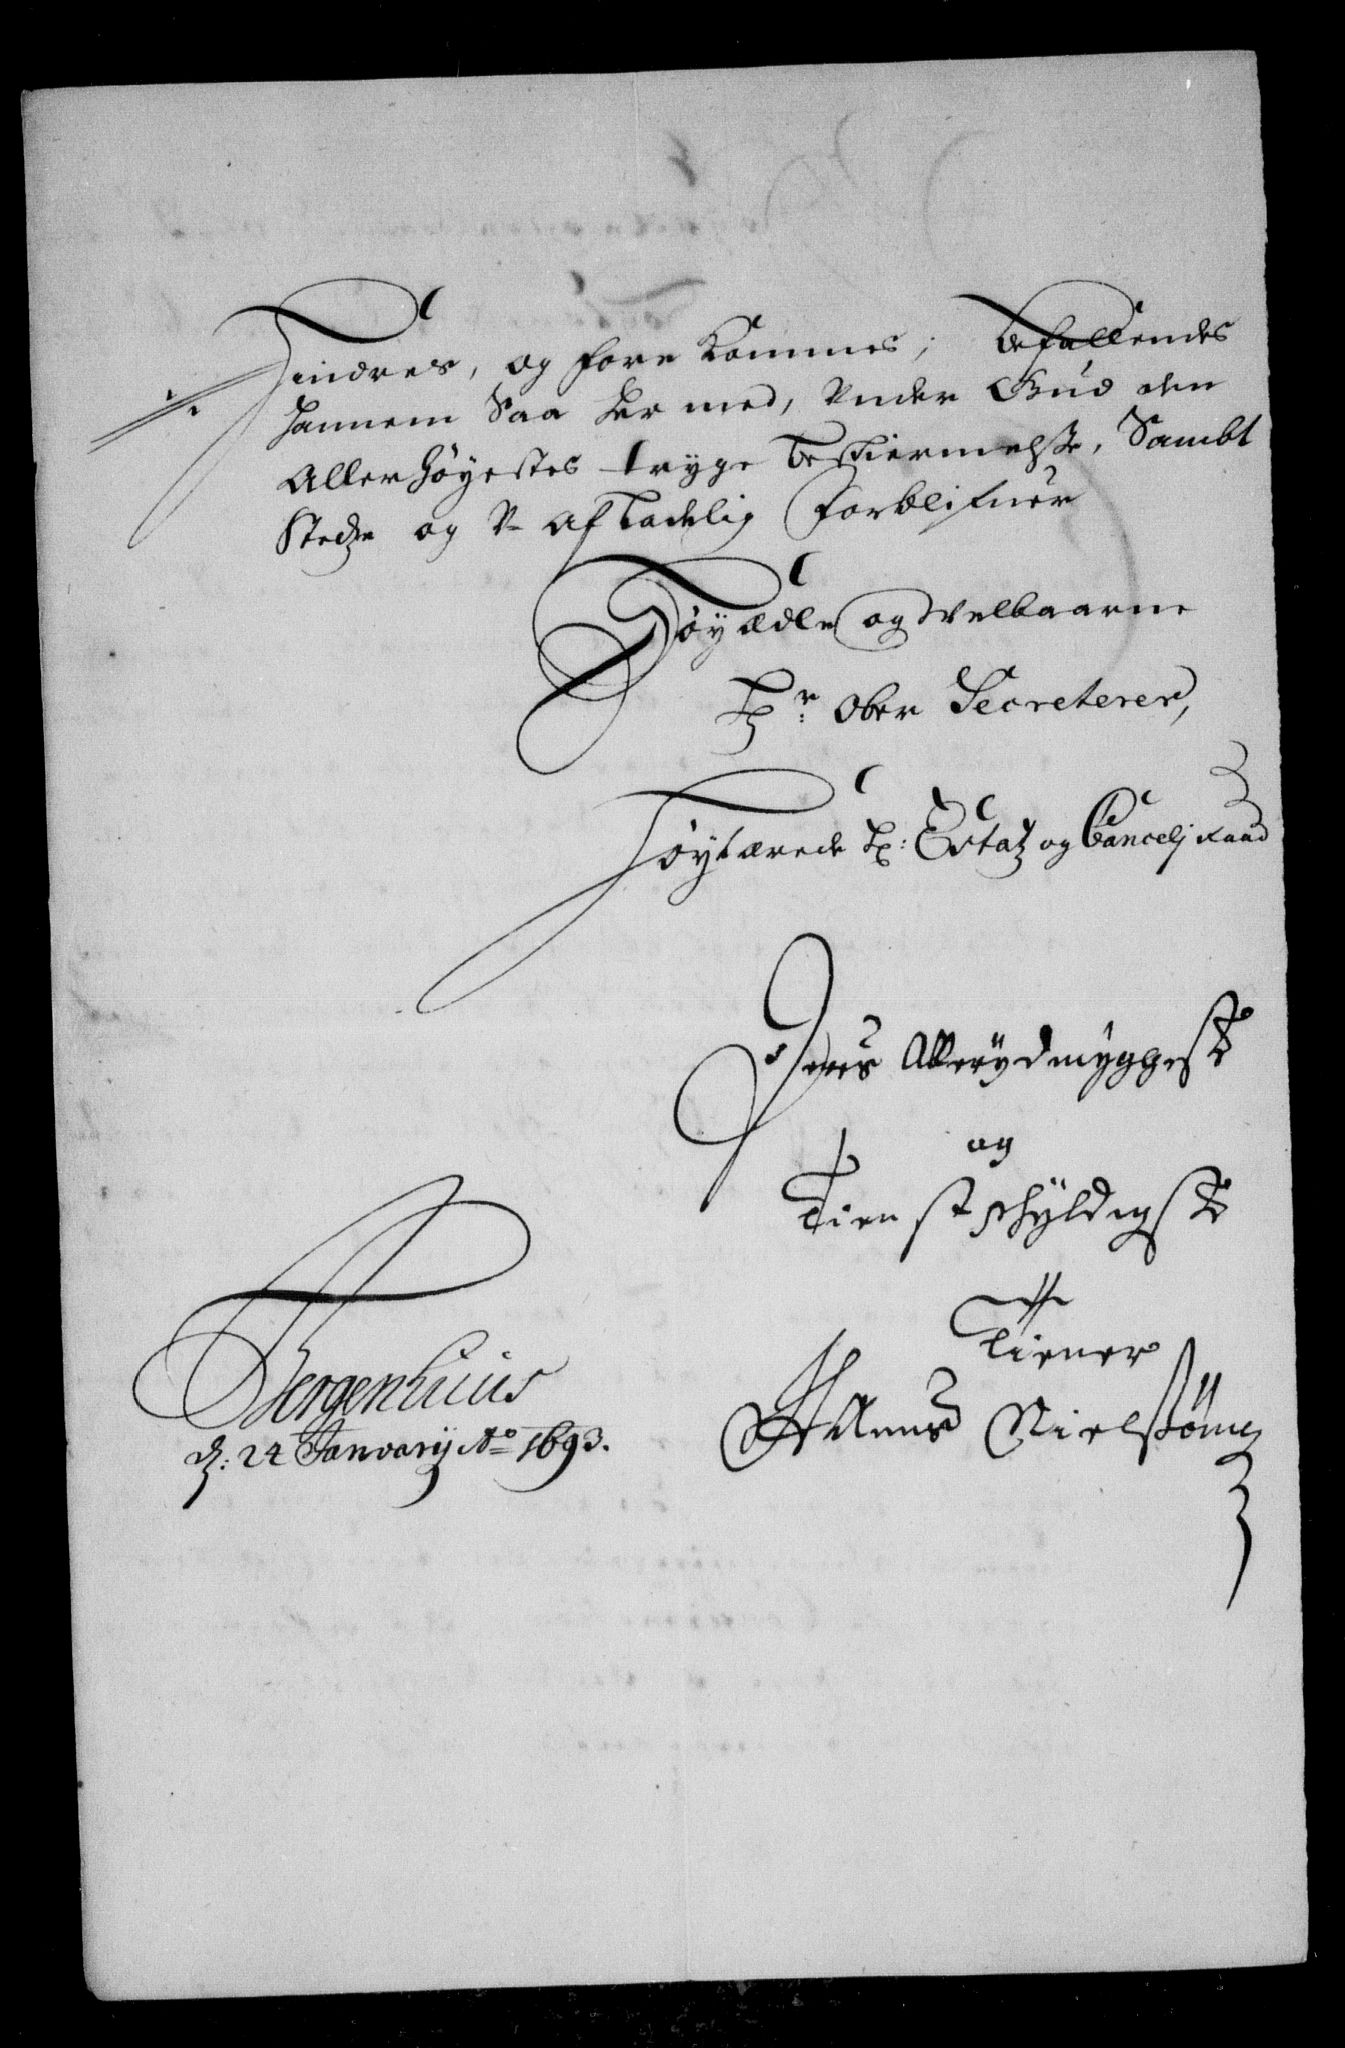 Hindres, og fore kommes; befallendes
hannem Saa her med, Under Gud den
Allerhøyestes tryge beskiermelsse, Sambt
Stedze og U-afladelig forblifuer
Høyædle og Welbaarne
Hr: Ober Secreterer,
Høylærede Hr: Estatz og Cancelj Raad
Deres Allerydmyggeste
og
Tienstschyldigste
Tiener
Hanns Nielssøn
Bergenhuus
d: 24 Januarij Ao 1693.